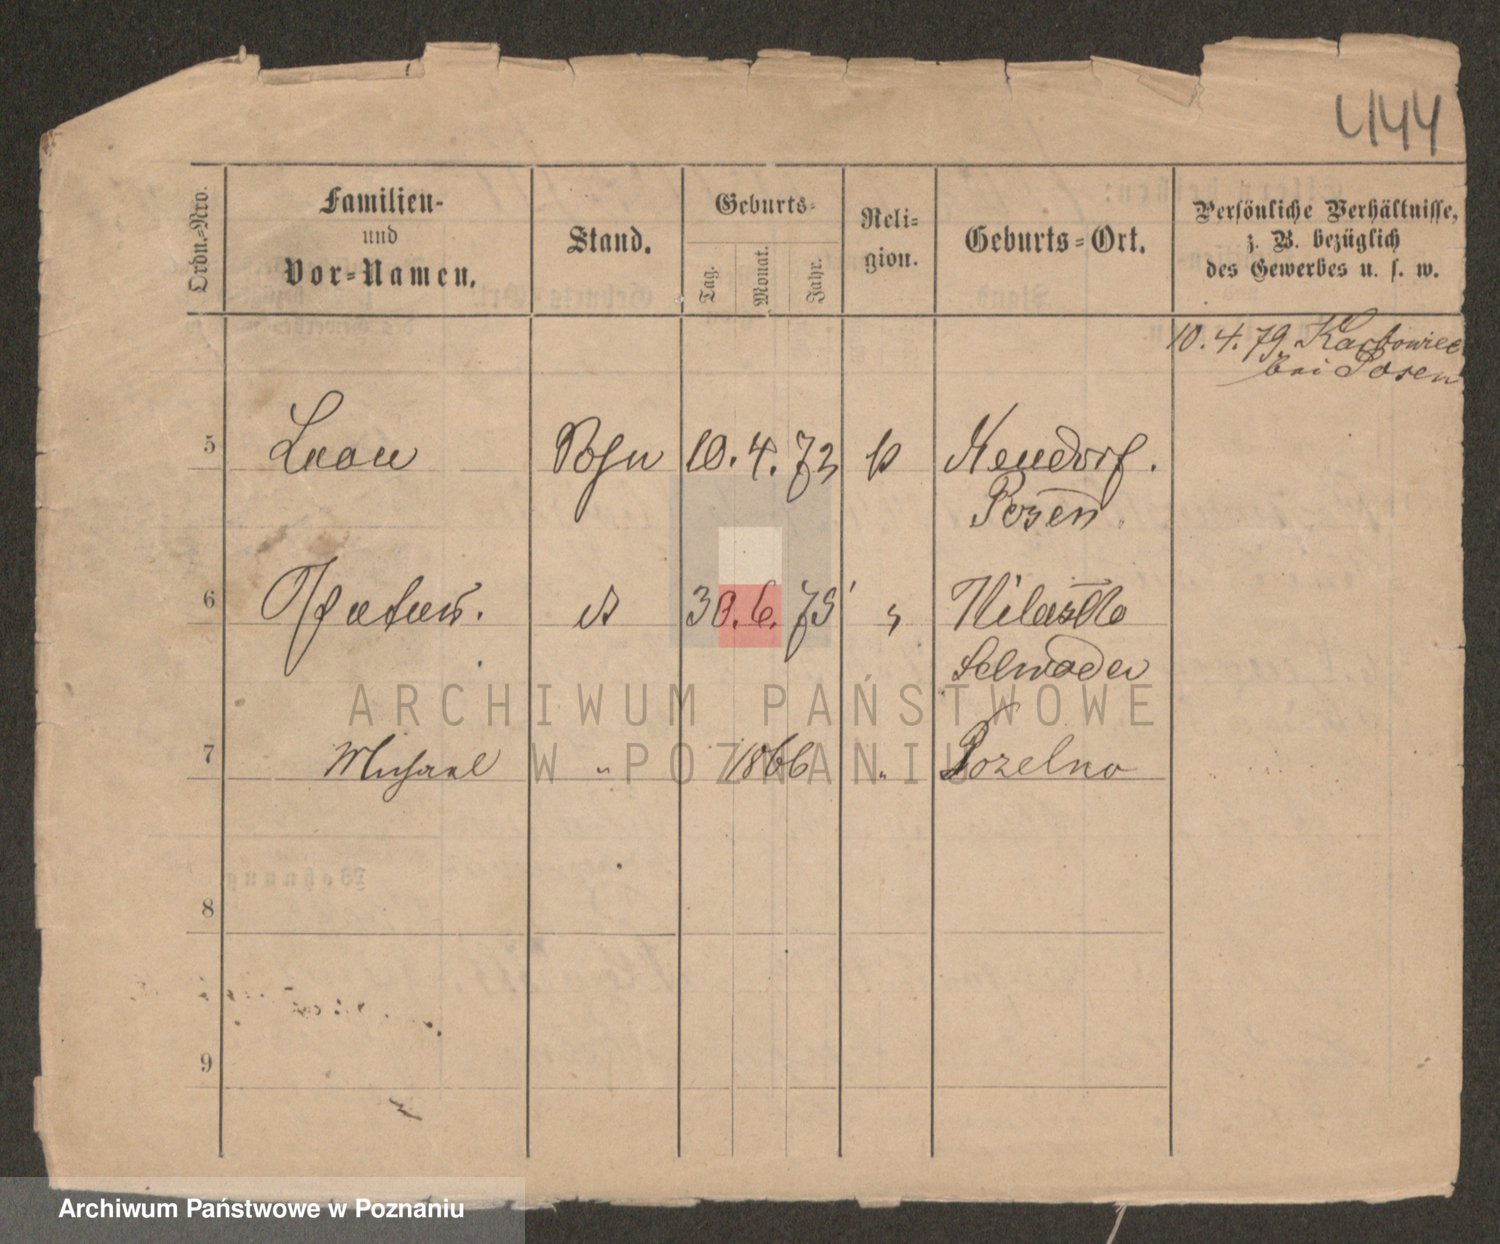 444
Ordn.-Nro.
Familien-
und
Vor-Namen.
Stand.
Geburts-
Tag.
Monat.
Jahr.
Reli-
gion.
Geburts-Ort.
Persönliche Verhältnisse,
z. B. bezüglich
des Gewerbes u. s. w.
10. 4. 79
bei Posen
5 Leon Sohn 10. 4. 73 k Neudorf.
Posen
6 30. 6. 75
7 Michael " 1866 "
8
9
ARCHIWUM PAŃSTWOWE
W POZNANIU
Archiwum Państwowe w Poznaniu